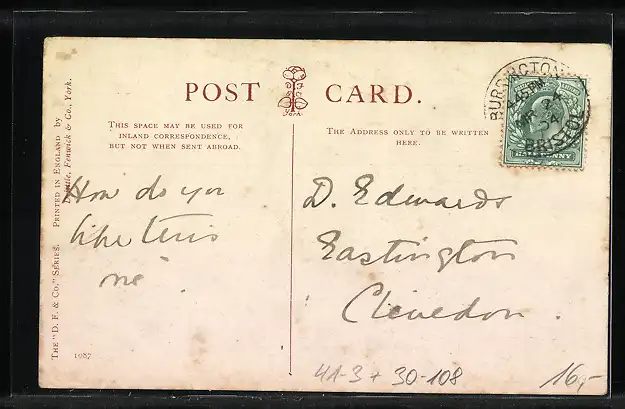 POST CARD.
THIS SPACE MAY BE USED FOR
INLAND CORRESPONDENCE,
BUT NOT WHEN SENT ABROAD.
THE ADDRESS ONLY TO BE WRITTEN
HERE.
How do you
like this
me
D. Edwards
Eastington
Clevedon.
THE "D. F. & Co." SERIES. PRINTED IN ENGLAND by
Fenwick & Co., York.
York
1087
BRISTOL
HALFPENNY
41-3 + 30-108
16,-